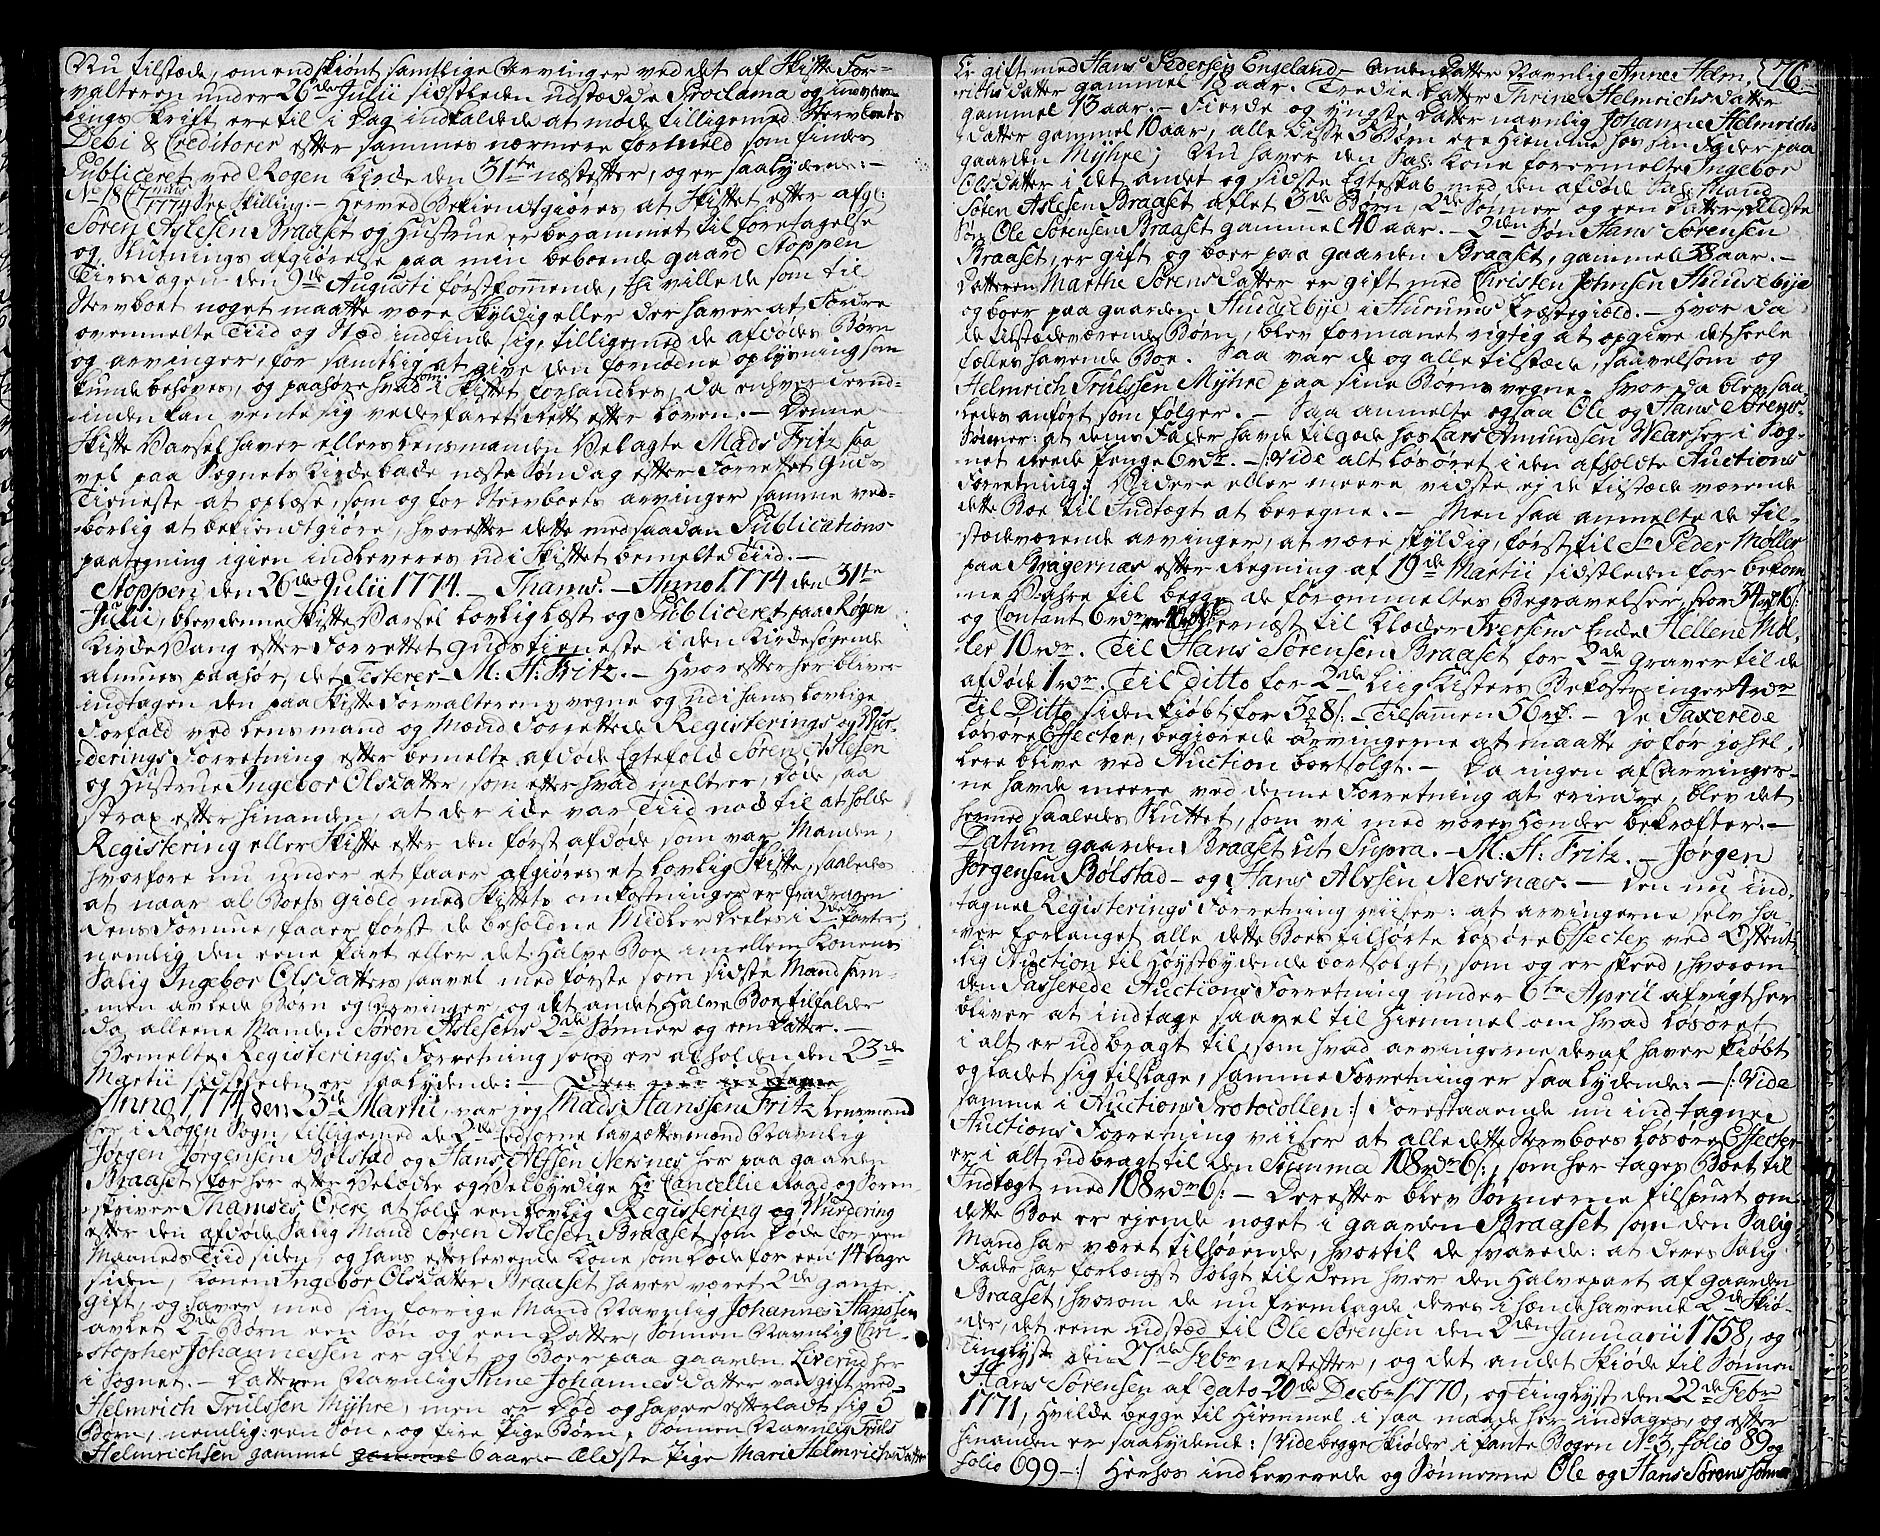 Nu tilstæde, om endskiønt samtlige Arvinger ved det af Skifte For-
valteren under 26de Julii sidstleden udstædde Proclama og
lings Skrift ere til i Dag indkaldede at møde tilligemed Stervboets
Debi & Creditorer efter sammes nærmere forhold som findes
Publiceret ved Røgen Kirke den 31te næstefter, og er saalydende:-
No 18 1774 Sex Skilling.- Herved Bekiendtgiøres at Skiftet efter afgl:
Søren Aslesen Braaset og Hustrue er berammet til foretagelse
og Slutnings afgiørelse paa min beboende gaard Stoppen
Tirsdagen den 9de Augusti førstkommende, thi vil de som til
Stervboet noget maatte være skyldig eller der haver at Fordre
ovenmelte Tiid og Stæd indfinde sig, tilligemed de afdødes Børn
og arvinger, for samtlig at give den fornødne oplysning som
kunde behøves, og paahøre hvad som i Skiftet forhandles, da enhver derud-
inden kan vente sig vederfaret Rett efter Loven.- Denne
Skifte Varsel haver ellers Lensmanden Velagte Mads Fritz saa
vel paa Sognets Kirkebakke næste Søndag efter Forrettet Guds
Tieneste at oplæse, som og for Stervboets arvinger samme ved-
børlig at bekiendtgiøre, hvorefter dette med saadan Publications
paategning igien indleveres udi Skiftet bemelte Tiid.-
Stoppen den 26de Julii 1774.- Thams.- Anno 1774 den 31te
Julii, blev denne Skifte Varsel lovlig Læst og Publiceret paa Røgen
Kirke Vang efter Forrettet gudstieneste i den Kirkesøgende
almues paahør, det Testerer M: H: Fritz.- Hvorefter her bliver
indtagen den paa Skifte Forvalterens vegne og udi hans lovlige
Forfald ved Lensmand og Mænd Forrettede Registerings og Vur-
derings Forretning efter bemelte afdøde Egtefolk Søren Aslesen
og Hustrue Ingebor Olsdatter, som efter hvad melt er, døde saa
strax efter hinanden, at der icke var Tiid nok til at holde
Registering eller Skifte efter den først afdøde som var Manden,
hvorfore nu under et faaer afgiøres et lovlig Skifte, saaledes
at naar al Boets Giæld med Skiftets omkostninger er fradragen
dens Formue, faaer først de beholdne Midler deeles i 2de Parter,
nemlig den eene Part eller det Halve Boe imellem Konens
Salig Ingebor Olsdatters saavel med første som sidste Mand sam-
men avlede Børn og Arvinger, og det andet Halve Boe tilfalder
da allene Manden Søren Aslesens 2de Sønner og een Datter.-
Bemelte Registerings Forretning som er afholden den 23de
Martii sidstleden er saalydende:-
Anno 1774, den 23de Martii, var jeg Mads Hanssen Fritz Lensmand
her i Røgen Sogn, tilligemed de 2de Edsorne Lavrettesmænd Navnlig
Jørgen Jørgensen Bølstad og Hans Alfsen Nersnes her paa gaarden
Braaset, for her efter Velædle og Velbyrdige Hr Cancellie Raad og Soren-
skriver Thamses Ordre at holde een lovlig Registering og Wurdering
efter den afdøde Salig Mand Søren Aslesen Braaset som døde for een
Maaneds Tiid siden, og hans efterlevende Kone som døde for een 14 Dage
siden, Konen Ingebor Olsdatter Braaset haver været 2de gange
Gift, og haver med sin forrige Mand Navnlig Johannes Hanssen
avlet 2de Børn een Søn og een Datter, Sønnen Navnlig Chri-
stopher Johannessen er gift og Boer paa gaarden Liverud her
i Sognet.- Datteren Navnlig Anne Johannesdatter var gift med
Helmrich Trulssen Myhre, men er Død og haver efterladt sig 5
Børn, nemlig: een Søn og fire Pige Børn, Sønnen Navnlig Truls
Helmrichsen gammel 6 aar- Ældste Pige Mari Helmrichsdatter
76.
Er gift med Hans Pedersen Engeland- Anden Datter Navnlig Anne Helm-
richsdatter gammel 18 aar. Tredie Datter Thrine Helmrichsdatter
gammel 13 aar.- Fierde og yngste Datter navnlig Johanne Helmrichs
datter gammel 10 aar, alle disse 5 Børn ere Hiemme hos sin Fader paa
gaarden Myhre; Nu haver den Sal: Kone forermelte Ingebor
Olsdatter i det andet og sidste Egteskab med den afdøde Sal: Mand
Søren Aslesen Braaset aflet 3de Børn, 2de Sønner og een Datter, Ældste
Søn Ole Sørensen Braaset gammel 40 aar.- 2den Søn Hans Sørensen
Braaset, er gift og boer paa gaarden Braaset, gammel 38 aar.-
Datteren Marthe Sørensdatter er gift med Christen Johnsen Huusebye
og boer paa gaarden Huusebye i Hurums Præstegiæld.- Hvor da
de tilstædeværende Børn, blev formanet rigtig at opgive det heele
fælles havende Boe. Saa var de og alle tilstæde, saavelsom og
Helmrich Trulssen Myhre paa sine Børns vegne. hvor da blev saa-
ledes anført som følger.- Saa anmelte ogsaa Ole og Hans Sørens-
Sønner: at dens Fader havde tilgode hos Lars Amundsen Wear her i Sog-
net Rede Penge 6rdr.-/: Vide alt løsøret i den afholdte Auctions
Forretning:/ Videre eller meere vidste ej de tilstæde værende
dette Boe til Indtægt at beregne.- Men saa anmelte de til-
stædeværende arvinger, at være skyldig, først til Sr Peder Møller
paa Bragernæs efter Regning af 19de Martii sidstleden for bekom-
ne Vahre til begge de forommeltes Begravelser,
og Contant 6rdr Dernæst til Kloder Iversens Enke Hellene Møl-
ler 10rdr. Til Hans Sørensen Braaset for 2de graver til de
afdøde 1rdr. Til ditto for 2de Liig Kisters Bekosteninger 4rdr
Til Ditto siden kiøbt for - Tilsammen 56 - De Taxerede
Løsøre Effecter, begiærede arvingerne at maatte jo før jo hel-
lere blive ved Auction bortsolgt.- Da ingen af Arvinger-
ne havde meere ved denne Forretning at erindre, blev det
hermed saaledes Sluttet, som vi med vores Hænder bekræfter.-
Datum gaarden Braaset ut Supra.- M: H: Fritz.- Jørgen
Jørgensen Bølstad- og Hans Alvsen Nersnæs.- Den nu ind-
tagne Registerings Forretning viiser: at arvingerne selv ha-
ver forlanget alle dette Boes tilhørte Løsøre Effecter ved Offent-
lig Auction til Høystbydende bortsolgt, som og er skeed, hvorom
den Passerede Auctions Forretning under 6te April afvigt her
bliver at indtage saavel til Hiemmel om hvad Løsøret
i alt er udbragt til, som hvad arvingerne deraf haver kiøbt
og ladet sig tilslage, samme Forretning er saa lydende:-/: Vide
samme i Auctions Protocollen:/ Forestaaende nu indtagne
Auctions Forretning viiser at alle dette Stervboes Løsøre Effecter
er i alt udbragt til den Summa 108rdr 6/:, som her tages Boet til
Indtægt med 108rdr 6/:- Derefter blev Sønnerne tilspurt om
dette Boe er ejende noget i gaarden Braaset som den Salig
Mand har været tilhørende, hvortil de svarede: at deres Salig
Fader har forlængst Solgt til dem hver den Halvepart af gaarden
Braaset, hvorom de nu fremlagde deres i hænde havende 2de Skiø-
der, det eene udstæd til Ole Sørensen den 2den Januarii 1758, og
Tinglyst den 27de Febr nestefter, og det andet Skiøde til Sønnen
Hans Sørensen af dato 20de Decbr 1770, og Tinglyst den 22de Febr
1771, Hvilke begge til Hiemmel i saa maade her indtages, og efter
hinanden er saalydende: /: Vide begge Skiøder i Pante Bogen No 3, folio 89 og
folio 699-:/ Herhos indleverede og Sønnerne Ole og Hans Sørens Sønner